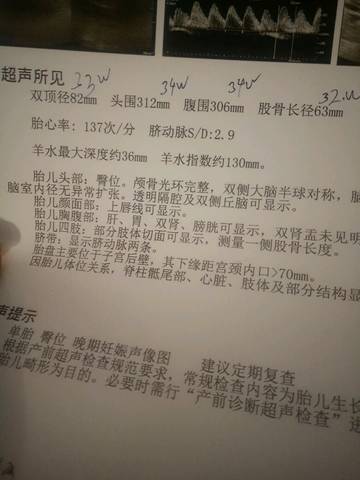 超声所见
33W 34W 34W 32.W
双顶径82mm 头围312mm 腹围306mm 股骨长径63mm
胎心率: 137次/分 脐动脉S/D:2.9
羊水最大深度约36mm 羊水指数约130mm。
胎儿头部: 臀位。颅骨光环完整, 双侧大脑半球对称, 脑
脑室内径无异常扩张。透明隔腔及双侧丘脑可显示。
胎儿颜面部: 上唇线可显示。
胎儿胸腹部: 肝、胃、双肾、膀胱可显示, 双肾盂未见明
胎儿四肢: 部分肢体切面可显示, 测量一侧股骨长度。
脐带: 显示脐动脉两条。
胎盘主要位于子宫后壁, 其下缘距宫颈内口>70mm。
因胎儿体位关系, 脊柱骶尾部、心脏、肢体及部分结构显
声提示
单胎 臀位 晚期妊娠声像图 建议定期复查
根据产前超声检查规范要求, 常规检查内容为胎儿生长
胎儿畸形为目的。必要时需行“产前诊断超声检查”进